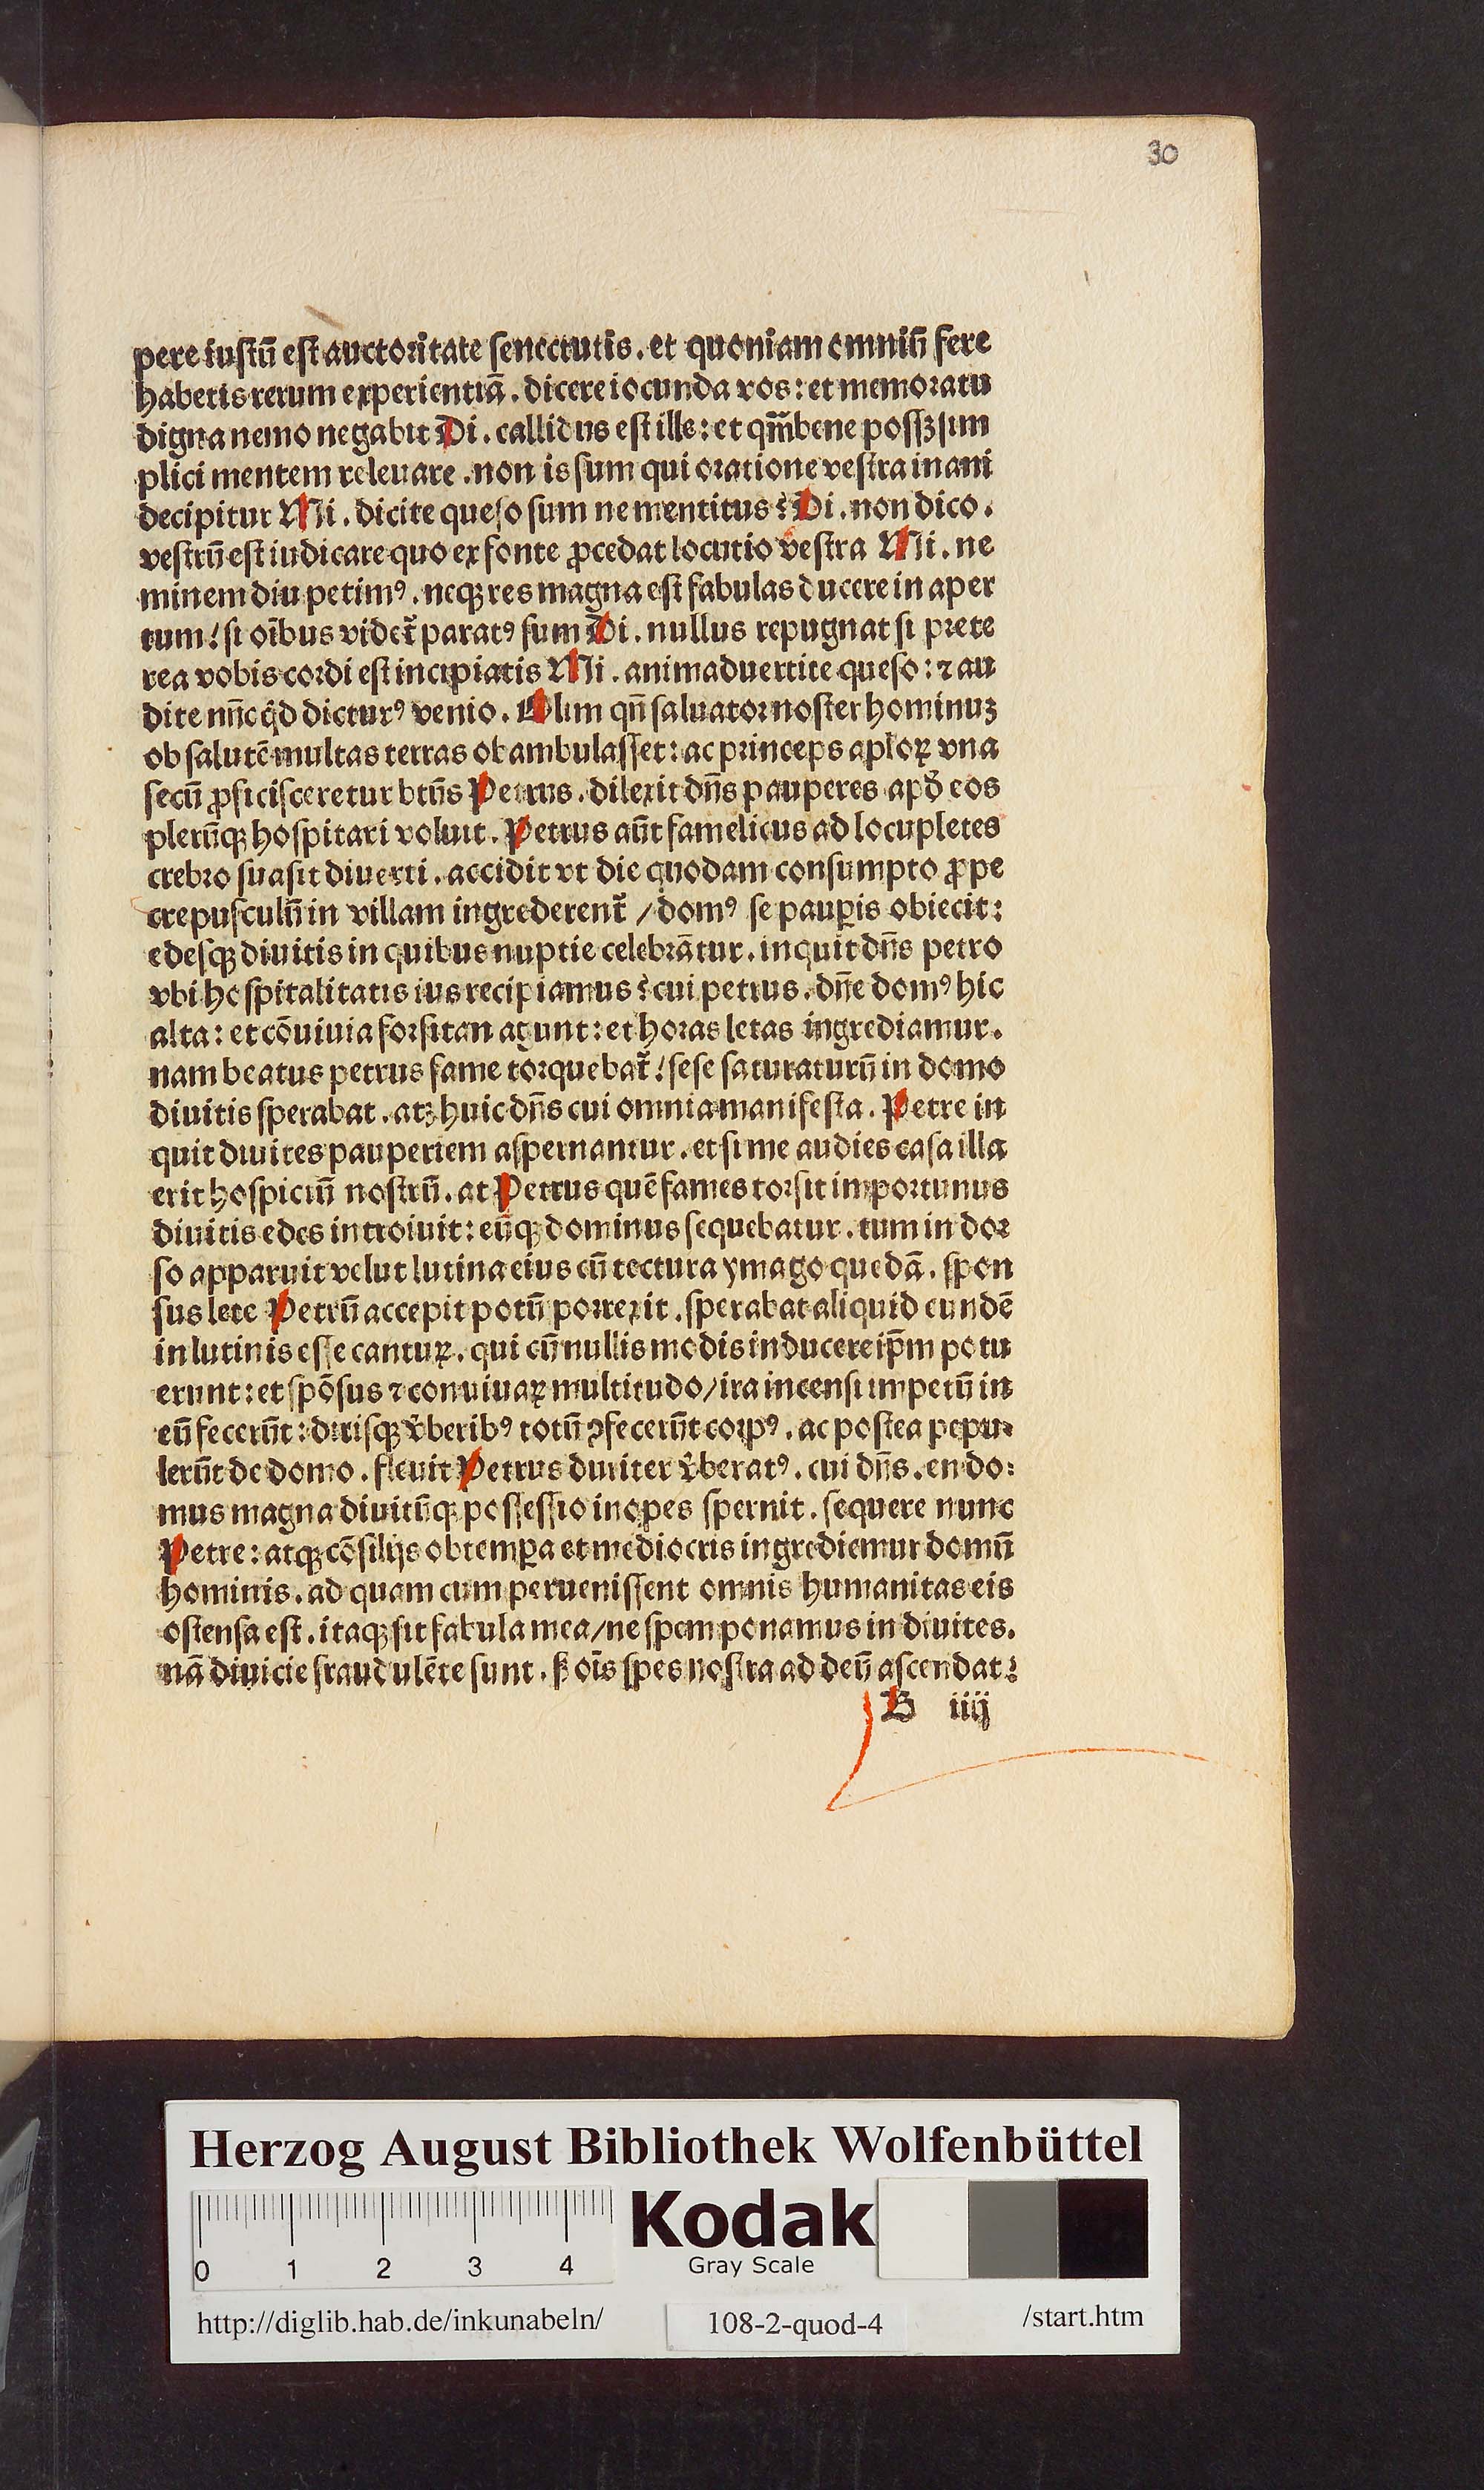 30
pere iustū est auctoritate senectutis . et quoniam omniū fere
habetis rerum experientiā . dicere iocunda vos : et memoratu
digna nemo negabit Di . callidus est ille : et qm̄ bene possꝫ sim
plici mentem releuare . non is sum qui oratione vestra inani
decipitur Mi . dicite queso sum ne mentitus ? Di . non dico .
vestrū est iudicare quo ex fonte ꝓcedat locutio vestra Mi . ne
minem diu petimꝰ . neqꝫ res magna est fabulas ducere in aper
tum / si oībus videt᷑ paratꝰ sum Di . nullus repugnat si prete
rea vobis cordi est incipiatis Mi . animaduertite queso : ⁊ au
dite nūc qͥd dicturꝰ venio . Olim qn̄ saluator noster hominuꝫ
ob salutē multas terras obambulasset : ac princeps apl'oꝝ vna
secū ꝓficisceretur btūs Petrus . dilexit dn̄s pauperes apđ eos
plerūqꝫ hospitari voluit . Petrus aūt famelicus ad locupletes
crebro suasit diuerti . accidit vt die quodam consumpto ꝓpe
crepusculū in villam ingrederent᷑ / domꝰ se pauꝑis obiecit :
edesqꝫ diuitis in quibus nuptie celebrātur . inquit dn̄s petro
vbi hospitalitatis ius recipiamus ? cui petrus . dn̄e domꝰ hic
alta : et cōuiuia forsitan agunt : et horas letas ingrediamur .
nam beatus petrus fame torquebat᷑ / sese saturaturū in domo
diuitis sperabat . atꝫ huic dn̄s cui omnia manifesta . Petre in
quit diuites pauperiem aspernantur . et si me audies casa illa
erit hospiciū nostrū . at Petrus quē fames torsit importunus
diuitis edes introiuit : eūqꝫ dominus sequebatur . tum in dor
so apparuit velut lutina eius cū tectura ymago quedā . spon
sus lete Petrū accepit potū porrexit . sperabat aliquid eundē
in lutinis esse cantuꝝ . qui cū nullis modis inducere ip̄m potu
erunt : et spōsus ⁊ conuiuaꝝ multitudo / ira incensi impetū in
eū fecerūt : dirisqꝫ v̓beribꝰ totū ꝯfecerūt corpꝰ . ac postea pepu-
lerūt de domo . fleuit Petrus duriter v̓beratꝰ . cui dn̄s . en do:
mus magna diuitūqꝫ possessio inopes spernit . sequere nunc
Petre : atqꝫ cōsilijs obtempꝑa et mediocris ingrediemur domū
hominis . ad quam cum peruenissent omnis humanitas eis
ostensa est . itaqꝫ sit fabula mea / ne spem ponamus in diuites .
nā diuicie fraudulēte sunt . ß oīs spes nostra ad deū ascendat :
B iiij
Herzog August Bibliothek Wolfenbüttel
0 1 2 3 4
Kodak
Gray Scale
http://diglib.hab.de/inkunabeln/ 108-2-quod-4 /start.htm